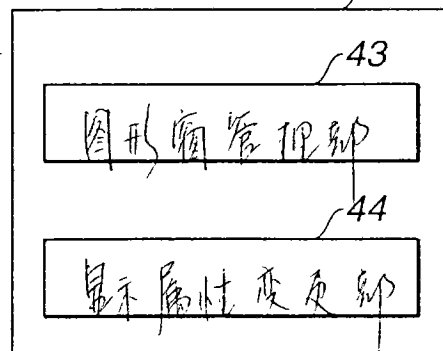 43
图形窗管理部
44
显示属性变更部